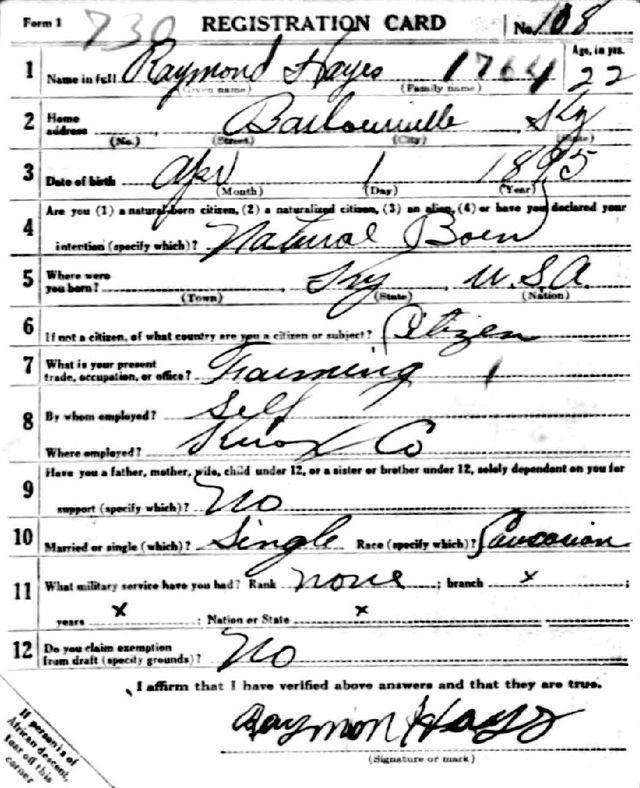 Form 1 730 REGISTRATION CARD No. 108
1 Name in full Raymond Hayes 1764 Age, in yrs. 22
(Given name) (Family name)
2 Home address Barbourville Ky
(No.) (Street) (City) (State)
3 Date of birth Apr 1 1895
(Month) (Day) (Year)
4 Are you (1) a natural-born citizen, (2) a naturalized citizen, (3) an alien, (4) or have you declared your
intention (specify which)? Natural Born
5 Where were you born? Ky U.S.A.
(Town) (State) (Nation)
6 If not a citizen, of what country are you a citizen or subject? Citizen
7 What is your present trade, occupation, or office? Farming
8 By whom employed? Self
Where employed? Knox Co
9 Have you a father, mother, wife, child under 12, or a sister or brother under 12, solely dependent on you for
support (specify which)? No
10 Married or single (which)? Single Race (specify which)? Caucasian
11 What military service have you had? Rank none ; branch x ;
years x ; Nation or State x
12 Do you claim exemption from draft (specify grounds)? No
I affirm that I have verified above answers and that they are true.
Raymon Hays
(Signature or mark)
If person is of
African descent,
tear off this
corner